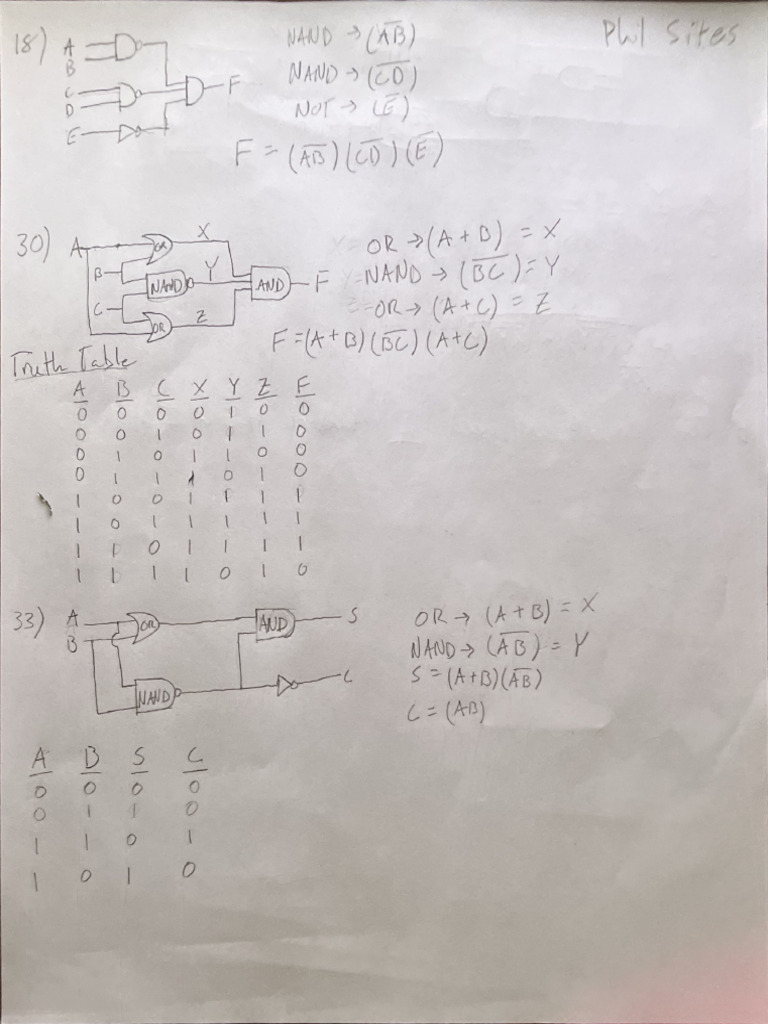 Phil Sites
18) A
B
C
D
E
F
NAND → (A̅B̅)
NAND → (C̅D̅)
NOT → (E̅)
F = (A̅B̅)(C̅D̅)(E̅)
30) A
B
C
OR
NAND
OR
X
Y
Z
AND
F
OR → (A + B) = X
NAND → (B̅C̅) = Y
OR → (A + C) = Z
F = (A + B)(B̅C̅)(A + C)
Truth Table
A B C X Y Z F
0 0 0 0 1 0 0
0 0 1 0 1 1 0
0 1 0 1 1 0 0
0 1 1 1 0 1 0
1 0 0 1 1 1 1
1 0 1 1 1 1 1
1 1 0 1 1 1 1
1 1 1 1 0 1 0
33) A
B
OR
NAND
AND
S
C
OR → (A + B) = X
NAND → (A̅B̅) = Y
S = (A + B)(A̅B̅)
C = (AB)
A B S C
0 0 0 0
0 1 1 0
1 1 0 1
1 0 1 0